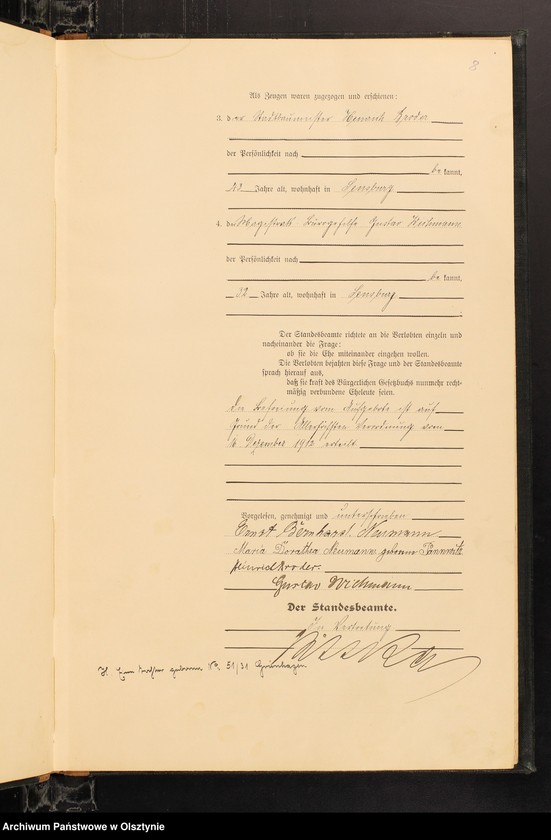 8
Als Zeugen waren zugezogen und erschienen:
3. der Stadtbaumeister Heinrich Kroder
der Persönlichkeit nach
be kannt,
Jahre alt, wohnhaft in Sensburg
4. der Magistrats Bürogehilfe Gustav Wichmann
der Persönlichkeit nach
be kannt,
32 Jahre alt, wohnhaft in Sensburg
Der Standesbeamte richtete an die Verlobten einzeln und
nacheinander die Frage:
ob sie die Ehe miteinander eingehen wollen.
Die Verlobten bejahten diese Frage und der Standesbeamte
sprach hierauf aus,
daß sie kraft des Bürgerlichen Gesetzbuchs nunmehr recht-
mäßig verbundene Eheleute seien.
Die Befreiung vom Aufgebote ist auf
Grund der Allerhöchsten Verordnung vom
Dezember 1912 erteilt
Vorgelesen, genehmigt und unterschrieben
Ernst Bernhard Neumann
Maria Dorothea Neumann geborene Pannwitz
Heinrich Kroder.
Gustav Wichmann
Der Standesbeamte.
In Vertretung
geboren Nr. 51/31
Archiwum Państwowe w Olsztynie